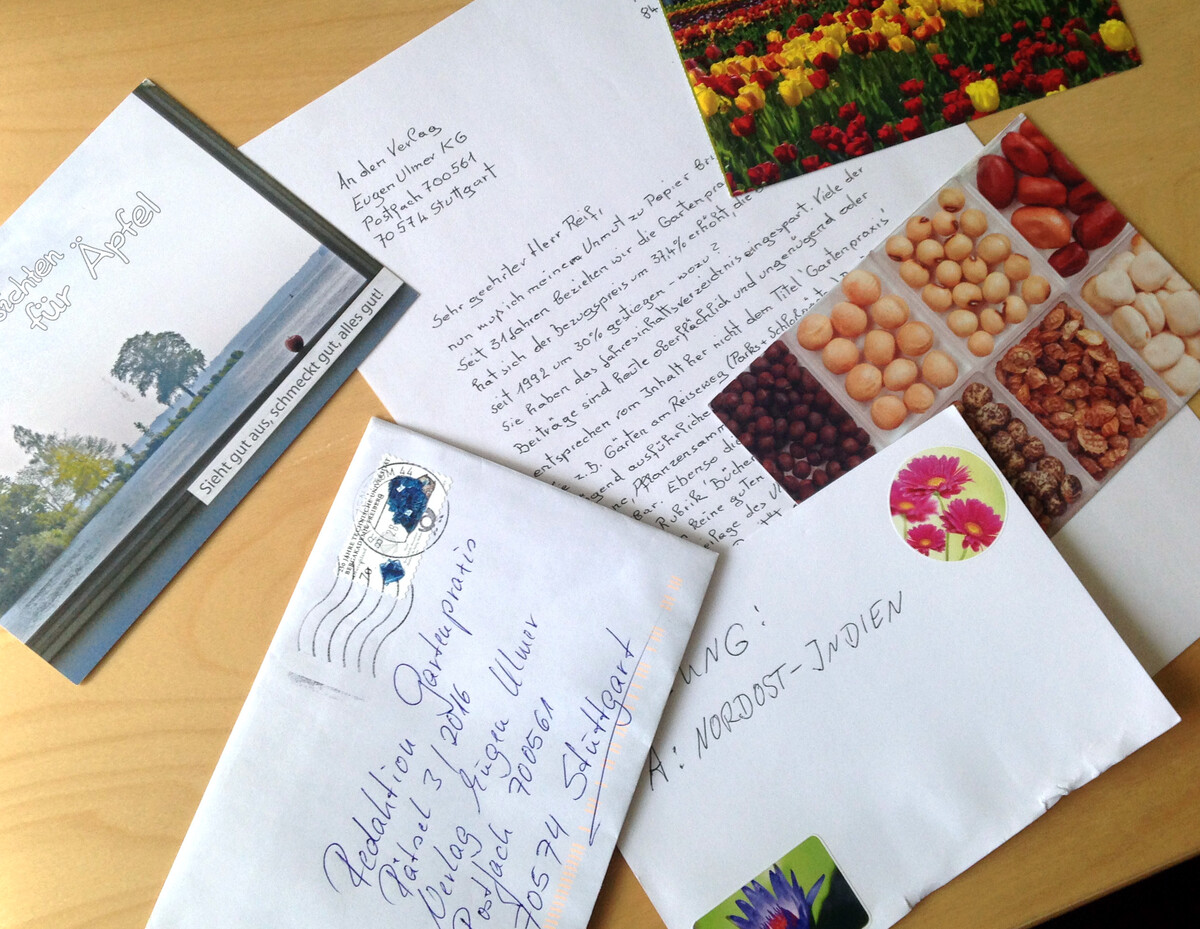 für Äpfel
Sieht gut aus, schmeckt gut, alles gut!
84
An den Verlag
Eugen Ulmer KG
Postfach 700561
70574 Stuttgart
Sehr geehrter Herr Reif,
nun muß ich meinem Unmut zu Papier
Seit 31 Jahren beziehen wir die Gartenpra
hat sich der Bezugspreis um 37,4% erhöht, die
seit 1992 um 30% gestiegen - wozu?
Sie haben das Jahresinhaltsverzeichnis eingespart. Viele der
Beiträge sind heute oberflächlich und ungenügend oder
entsprechen vom Inhalt her nicht dem Titel 'Gartenpraxis'
z.B. Gärten am Reiseweg (Parks +
ausführlicher
Pflanzensamm
Ebenso die
Rubrik 'Bücher
keine guten
des
M 44
250 JAHRE TECHNISCHE UNIVERSITÄT
BERGAKADEMIE FREIBERG
70
28
Redaktion Gartenpraxis
Rätsel 3/2016
Verlag Eugen Ulmer
Postfach 700561
70574 Stuttgart
UNG:
A: NORDOST-INDIEN